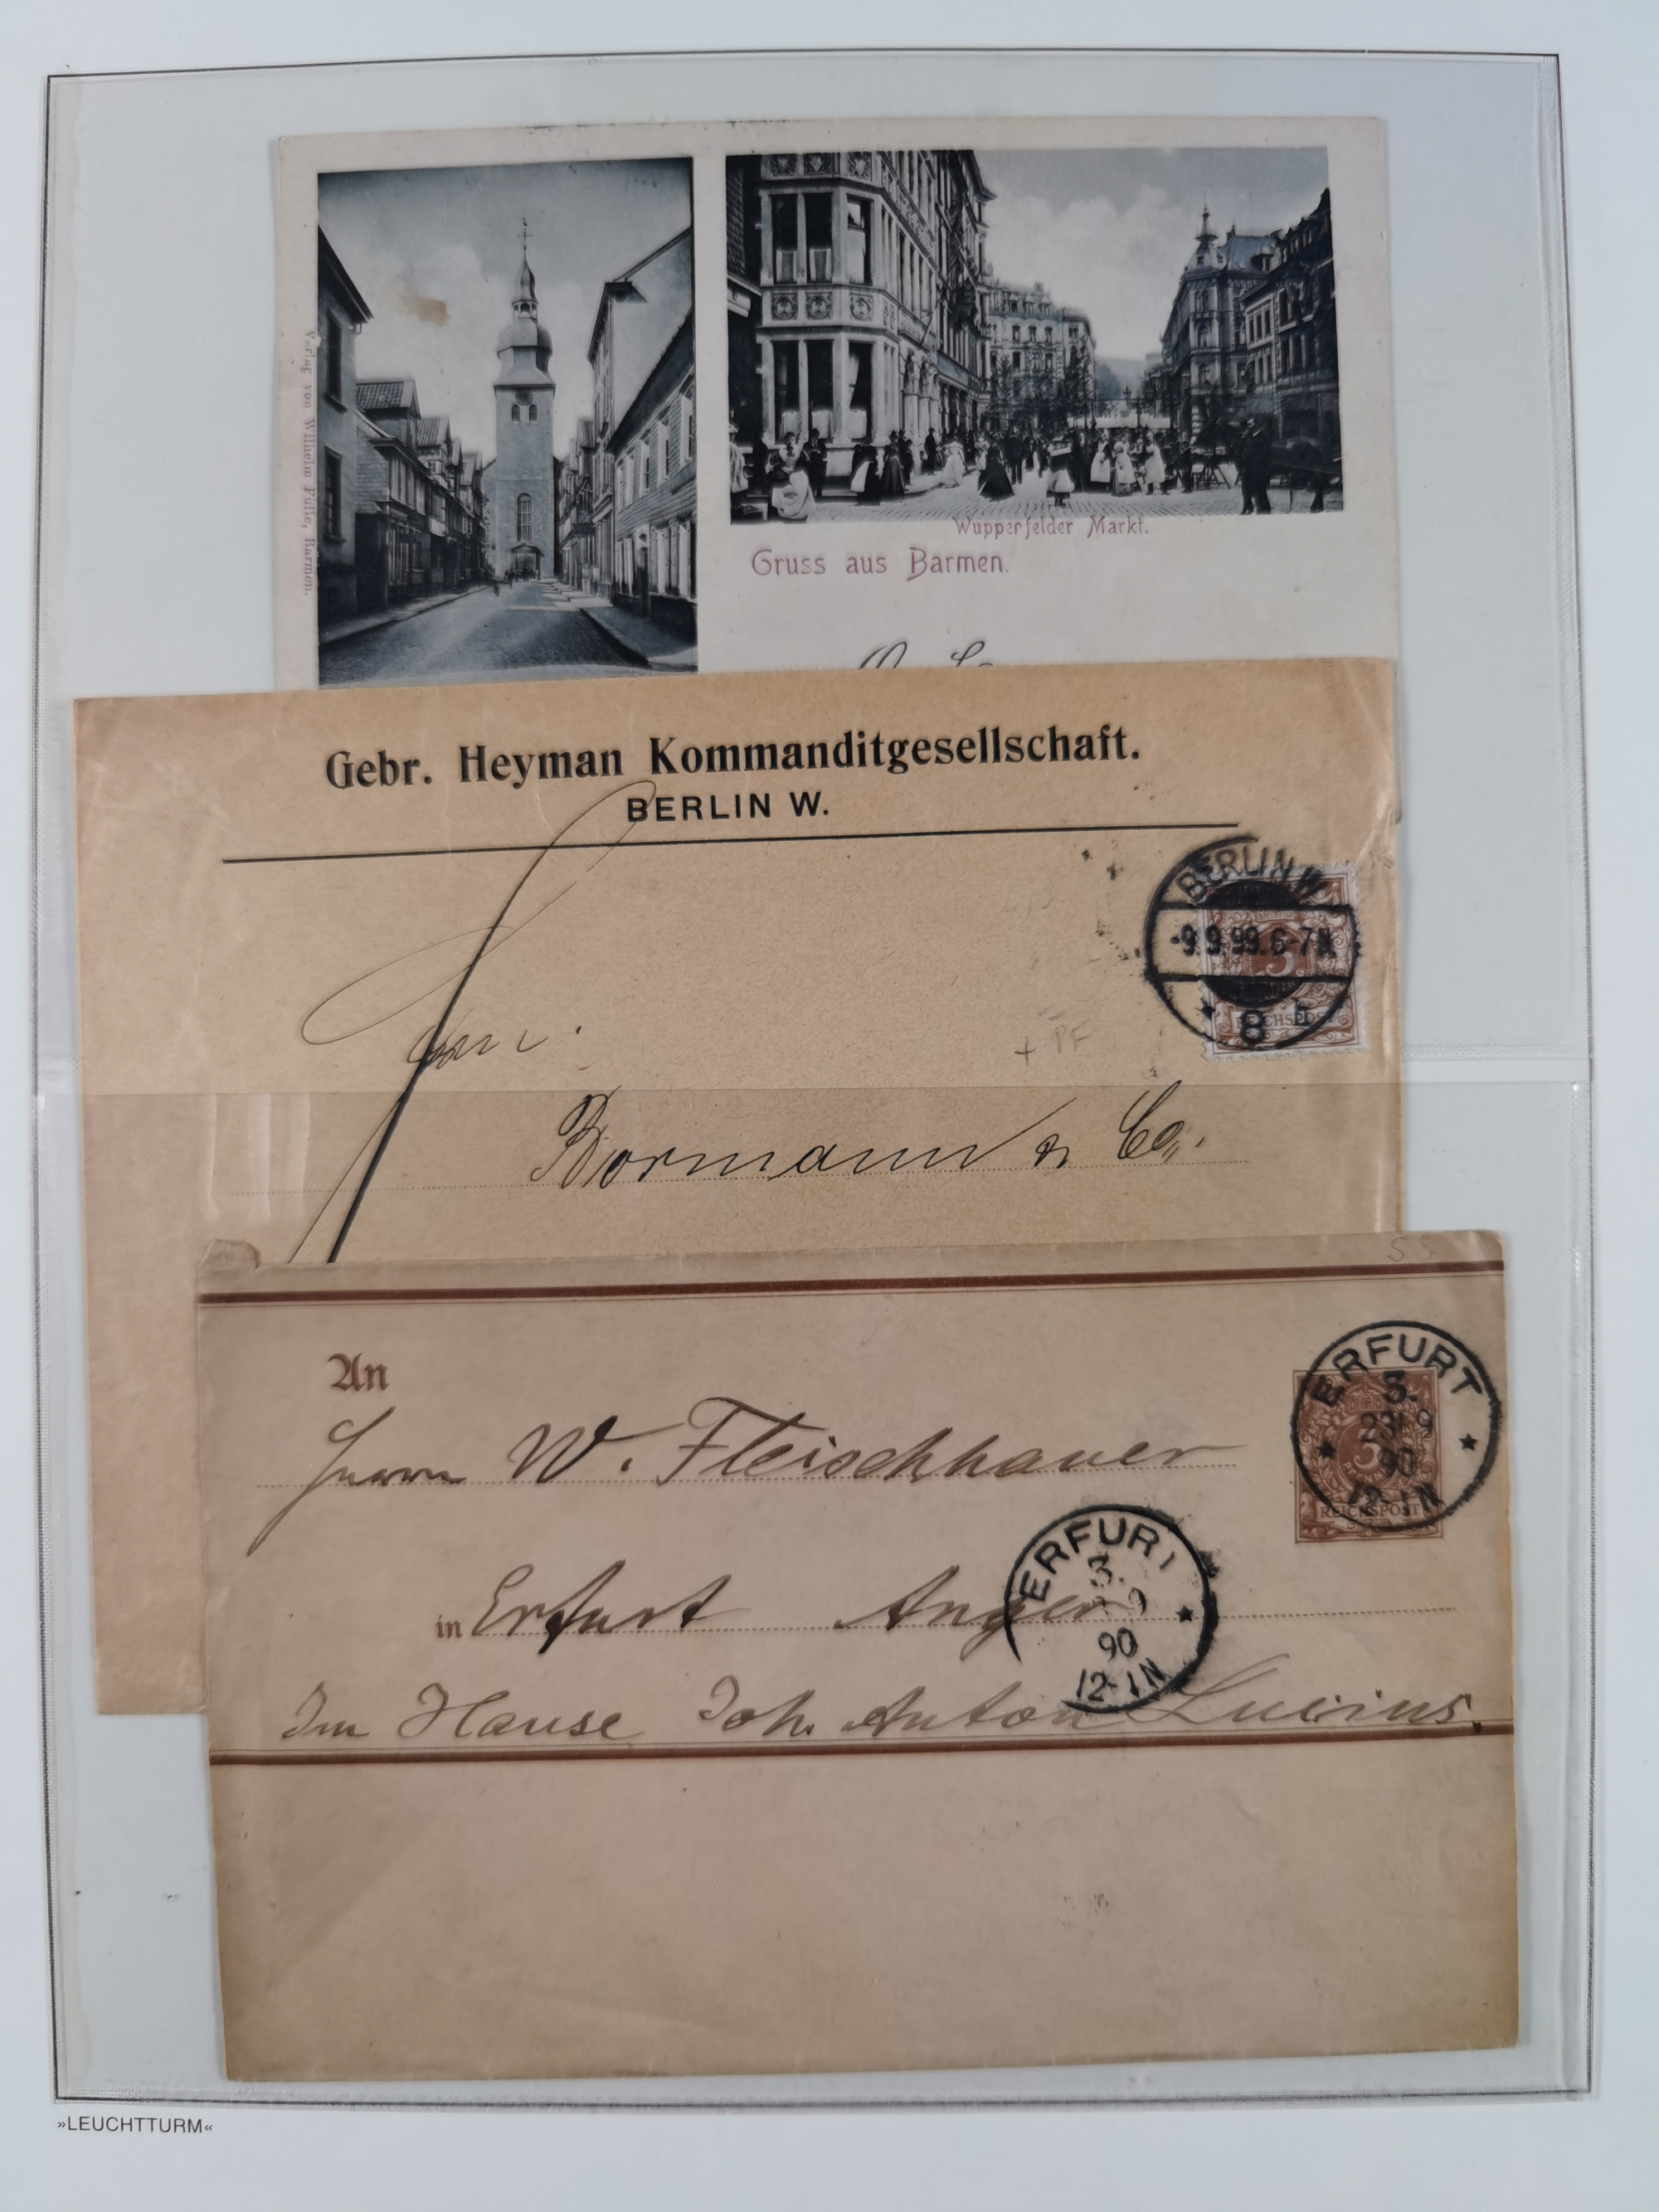 Verlag von Wilhelm Fülle, Barmen.
Wupperfelder Markt.
Gruss aus Barmen.
Gebr. Heyman Kommanditgesellschaft.
BERLIN W.
BERLIN W
-9.9.99.6-7N
* 8 b
3
REICHSPOST
+ PF
Bormann & Co.
An
Herrn W. Fleischhauer
in Erfurt Anger
Im Hause Joh. Anton Lucius.
ERFURT
3.
23 9
90
12-1N
3
REICHSPOST
ERFURT
3.
9
90
12-1N
»LEUCHTTURM«